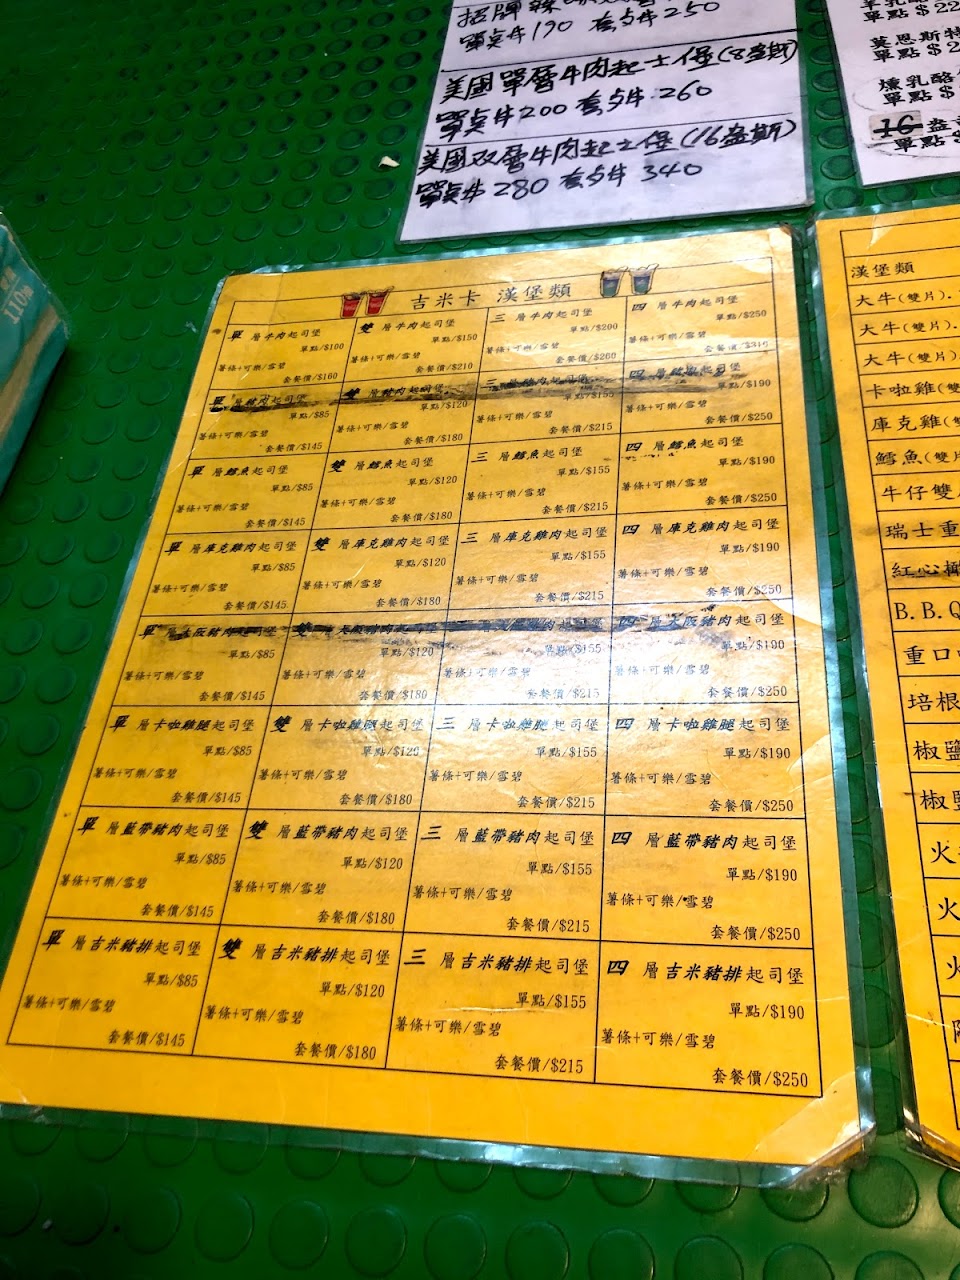 招牌辣
單点 $190 套夕 $250
美國單層牛肉起士堡(8盎斯)
單点 $200 套夕 $260
美國双層牛肉起士堡(16盎斯)
單点 $280 套夕 $340
單點 $22
莫恩斯特
單點 $2
燻乳酪
單點 $
16 盎
單點 $
110
吉米卡 漢堡類
單 層牛肉起司堡 雙 層牛肉起司堡 三 層牛肉起司堡 四 層牛肉起司堡
單點/$100 單點/$150 單點/$200 單點/$250
薯條+可樂/雪碧 薯條+可樂/雪碧 薯條+可樂/雪碧 薯條+可樂/雪碧
套餐價/$160 套餐價/$210 套餐價/$260 套餐價/$310
單 層豬肉起司堡 雙 層豬肉起司堡 三 層豬肉起司堡 四
單點/$85 單點/$120 單點/$155 單點/$190
薯條+可樂/雪碧 薯條+可樂/雪碧 薯條+可樂/雪碧 薯條+可樂/雪碧
套餐價/$145 套餐價/$180 套餐價/$215 套餐價/$250
單 層鱈魚起司堡 雙 層鱈魚起司堡 三 層鱈魚起司堡 四 層鱈魚起司堡
單點/$85 單點/$120 單點/$155 單點/$190
薯條+可樂/雪碧 薯條+可樂/雪碧 薯條+可樂/雪碧 薯條+可樂/雪碧
套餐價/$145 套餐價/$180 套餐價/$215 套餐價/$250
單 層庫克雞肉起司堡 雙 層庫克雞肉起司堡 三 層庫克雞肉起司堡 四 層庫克雞肉起司堡
單點/$85 單點/$120 單點/$155 單點/$190
薯條+可樂/雪碧 薯條+可樂/雪碧 薯條+可樂/雪碧 薯條+可樂/雪碧
套餐價/$145 套餐價/$180 套餐價/$215 套餐價/$250
單 層大阪豬肉起司堡 雙 層大阪豬肉起司堡 四 層大阪豬肉起司堡
單點/$85 單點/$120 單點/$155 單點/$190
薯條+可樂/雪碧 薯條+可樂/雪碧 薯條+可樂/雪碧 薯條+可樂/雪碧
套餐價/$145 套餐價/$180 套餐價/$215 套餐價/$250
單 層卡啦雞腿起司堡 雙 層卡啦雞腿起司堡 三 層卡啦雞腿起司堡 四 層卡啦雞腿起司堡
單點/$85 單點/$120 單點/$155 單點/$190
薯條+可樂/雪碧 薯條+可樂/雪碧 薯條+可樂/雪碧 薯條+可樂/雪碧
套餐價/$145 套餐價/$180 套餐價/$215 套餐價/$250
單 層藍帶豬肉起司堡 雙 層藍帶豬肉起司堡 三 層藍帶豬肉起司堡 四 層藍帶豬肉起司堡
單點/$85 單點/$120 單點/$155 單點/$190
薯條+可樂/雪碧 薯條+可樂/雪碧 薯條+可樂/雪碧 薯條+可樂/雪碧
套餐價/$145 套餐價/$180 套餐價/$215 套餐價/$250
單 層吉米豬排起司堡 雙 層吉米豬排起司堡 三 層吉米豬排起司堡 四 層吉米豬排起司堡
單點/$85 單點/$120 單點/$155 單點/$190
薯條+可樂/雪碧 薯條+可樂/雪碧 薯條+可樂/雪碧 薯條+可樂/雪碧
套餐價/$145 套餐價/$180 套餐價/$215 套餐價/$250
漢堡類
大牛(雙片).
大牛(雙片).
大牛(雙片)
卡啦雞(雙
庫克雞(雙
鱈魚(雙片
牛仔雙
瑞士重
紅心
B.B.Q
重口
培根
椒鹽
椒鹽
火
火
火